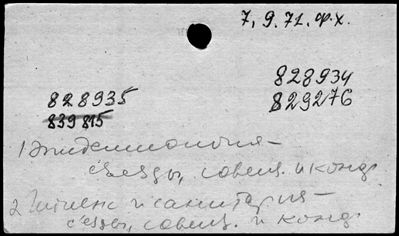 7, 9.71. ф.х.
828934
829276
828935
839815
1) Эпидемиология —
съезды, совещ. и конф.
2. Гигиена и санитария —
съезды, совещ. и конф.